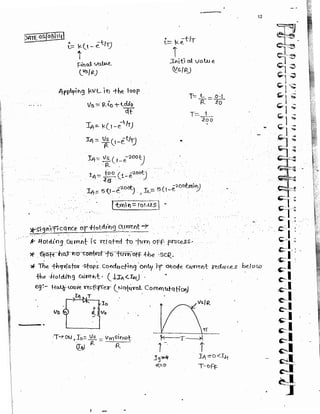 12
DATE 05/08/14
i = k(1 - e^-t/T)
i = k e^-t/T
↑
Final value
(Vs/R)
↑
Initial value
(Vs/R)
Applying KVL in the loop
Vs = R io + L dio/dt
T = L/R = 0.1/20
IA = k(1 - e^-t/T)
T = 1/200
IA = Vs/R (1 - e^-t/T)
IA = Vs/R (1 - e^-200t)
IA = 100/20 (1 - e^-200t)
IA = 5(1 - e^-200t), IL = 5(1 - e^-200tmin)
* Significance of Holding current →
* Holding current is related to turn off process.
* Gate has no control to turn off the SCR.
* The thyristor stops conducting only if anode current reduces below
the holding current. (↓IA < IH)
eg:- Half wave rectifier (Natural commutation)
IA T
Io
Vs
R Vo
Vs/R
π
T → ON, Io = Vs/R = Vm sin ωt/R
T
α = 0
IA = 0 < IH
T - OFF